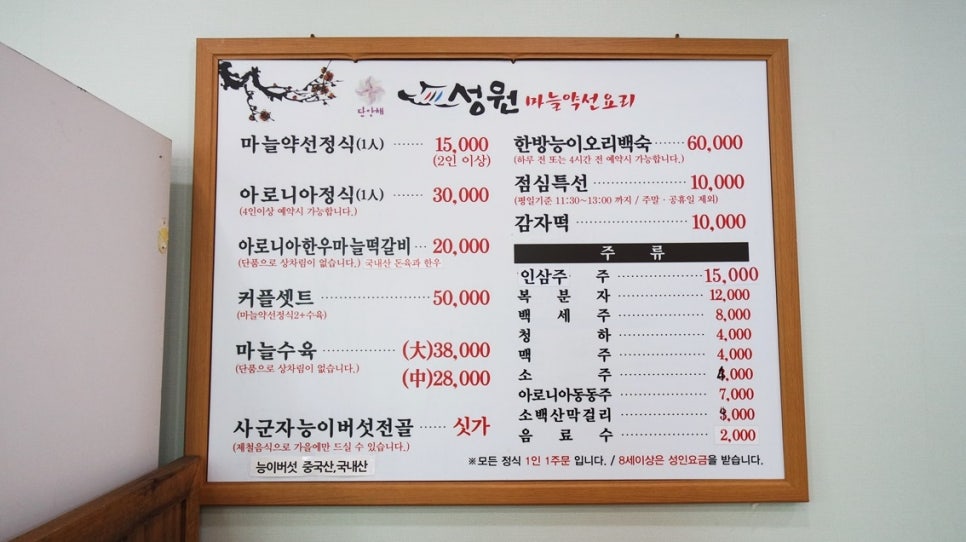 단양해
성원 마늘약선요리
마늘약선정식(1人) 15,000
(2인 이상)
아로니아정식(1人) 30,000
(4인이상 예약시 가능합니다.)
아로니아한우마늘떡갈비 20,000
(단품으로 상차림이 없습니다.) 국내산 돈육과 한우
커플셋트 50,000
(마늘약선정식2+수육)
마늘수육 (大)38,000
(단품으로 상차림이 없습니다.)
(中)28,000
사군자능이버섯전골 싯가
(제철음식으로 가을에만 드실 수 있습니다.)
능이버섯 중국산,국내산
한방능이오리백숙 60,000
(하루 전 또는 4시간 전 예약시 가능합니다.)
점심특선 10,000
(평일기준 11:30~13:00 까지 / 주말 · 공휴일 제외)
감자떡 10,000
주 류
인삼주 주 15,000
복 분 자 12,000
백 세 주 8,000
청 하 4,000
맥 주 4,000
소 주 4,000
아로니아동동주 7,000
소백산막걸리 3,000
음 료 수 2,000
※모든 정식 1인 1주문 입니다. / 8세이상은 성인요금을 받습니다.